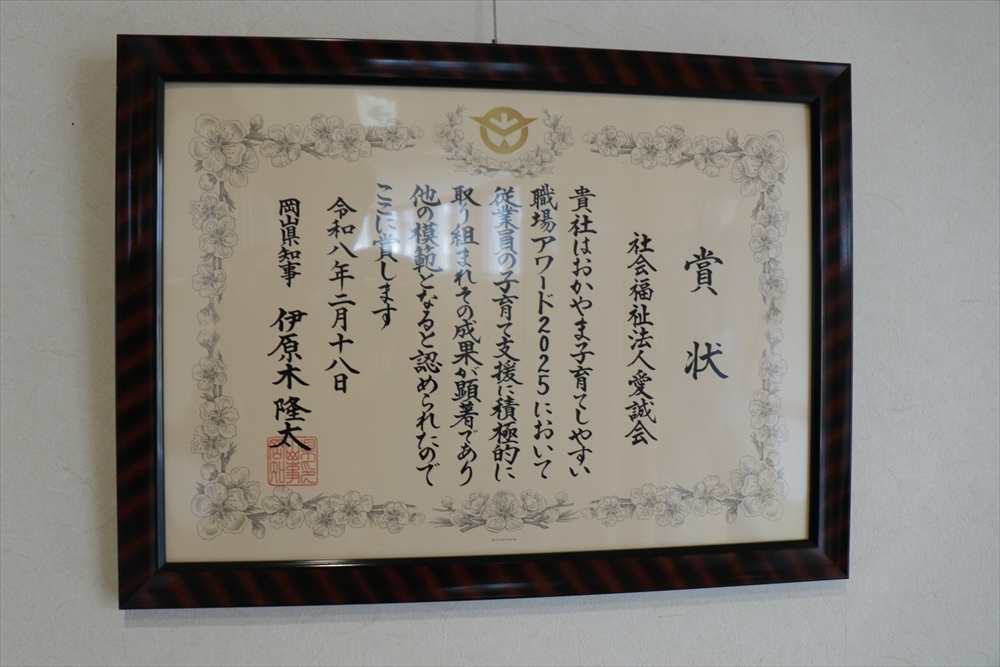 賞状
社会福祉法人愛誠会
貴社はおかやま子育てしやすい
職場アワード2025において
従業員の子育て支援に積極的に
取り組まれその成果が顕著であり
他の模範となると認められたので
ここに賞します
令和八年二月十八日
岡山県知事 伊原木隆太